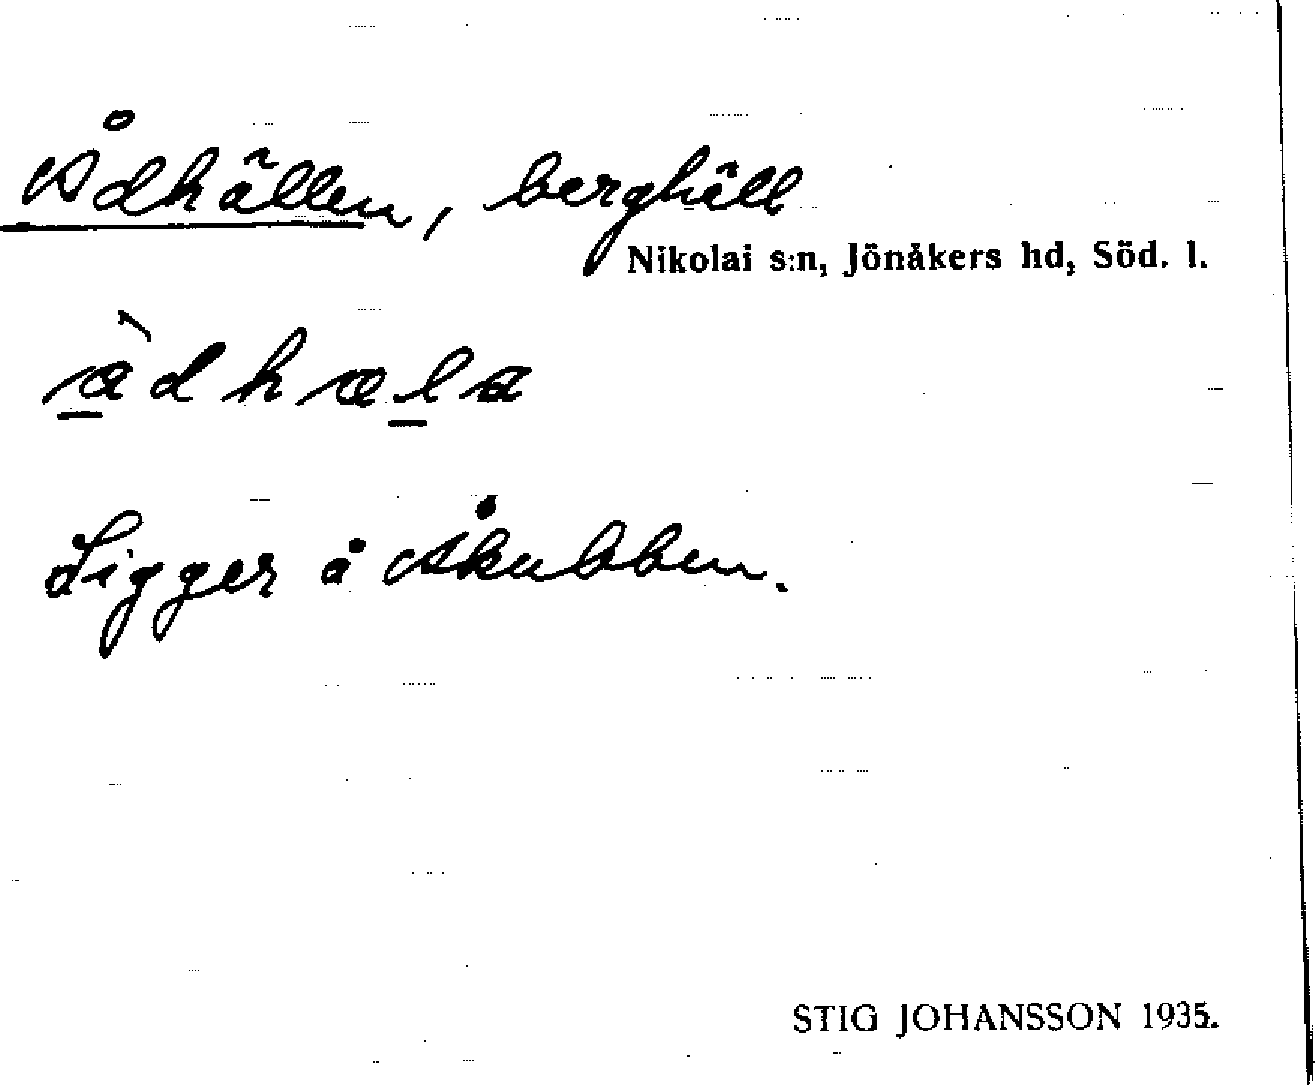 Ådhällen, berghäll
Nikolai s:n, Jönåkers hd, Söd. l.
Ligger å Åkubben.
STIG JOHANSSON 1935.